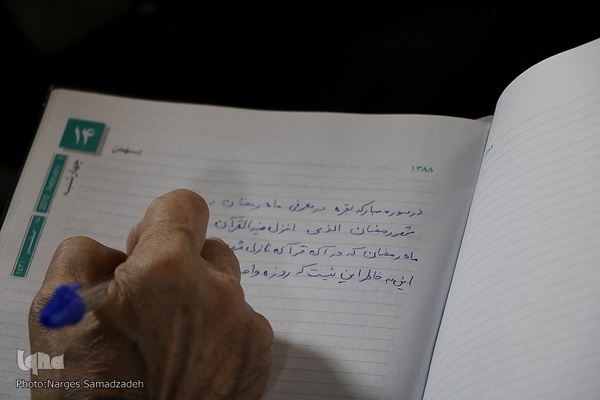 ۱۴
بهمن
۱۳۸۸
در سوره مبارکه بقره در معرفی ماه رمضان
شهر رمضان الذی انزل فیه القرآن
ماه رمضان که در آن قرآن نازل شد
این به خاطر این نیست که روزه
iqna
Photo:Narges Samadzadeh